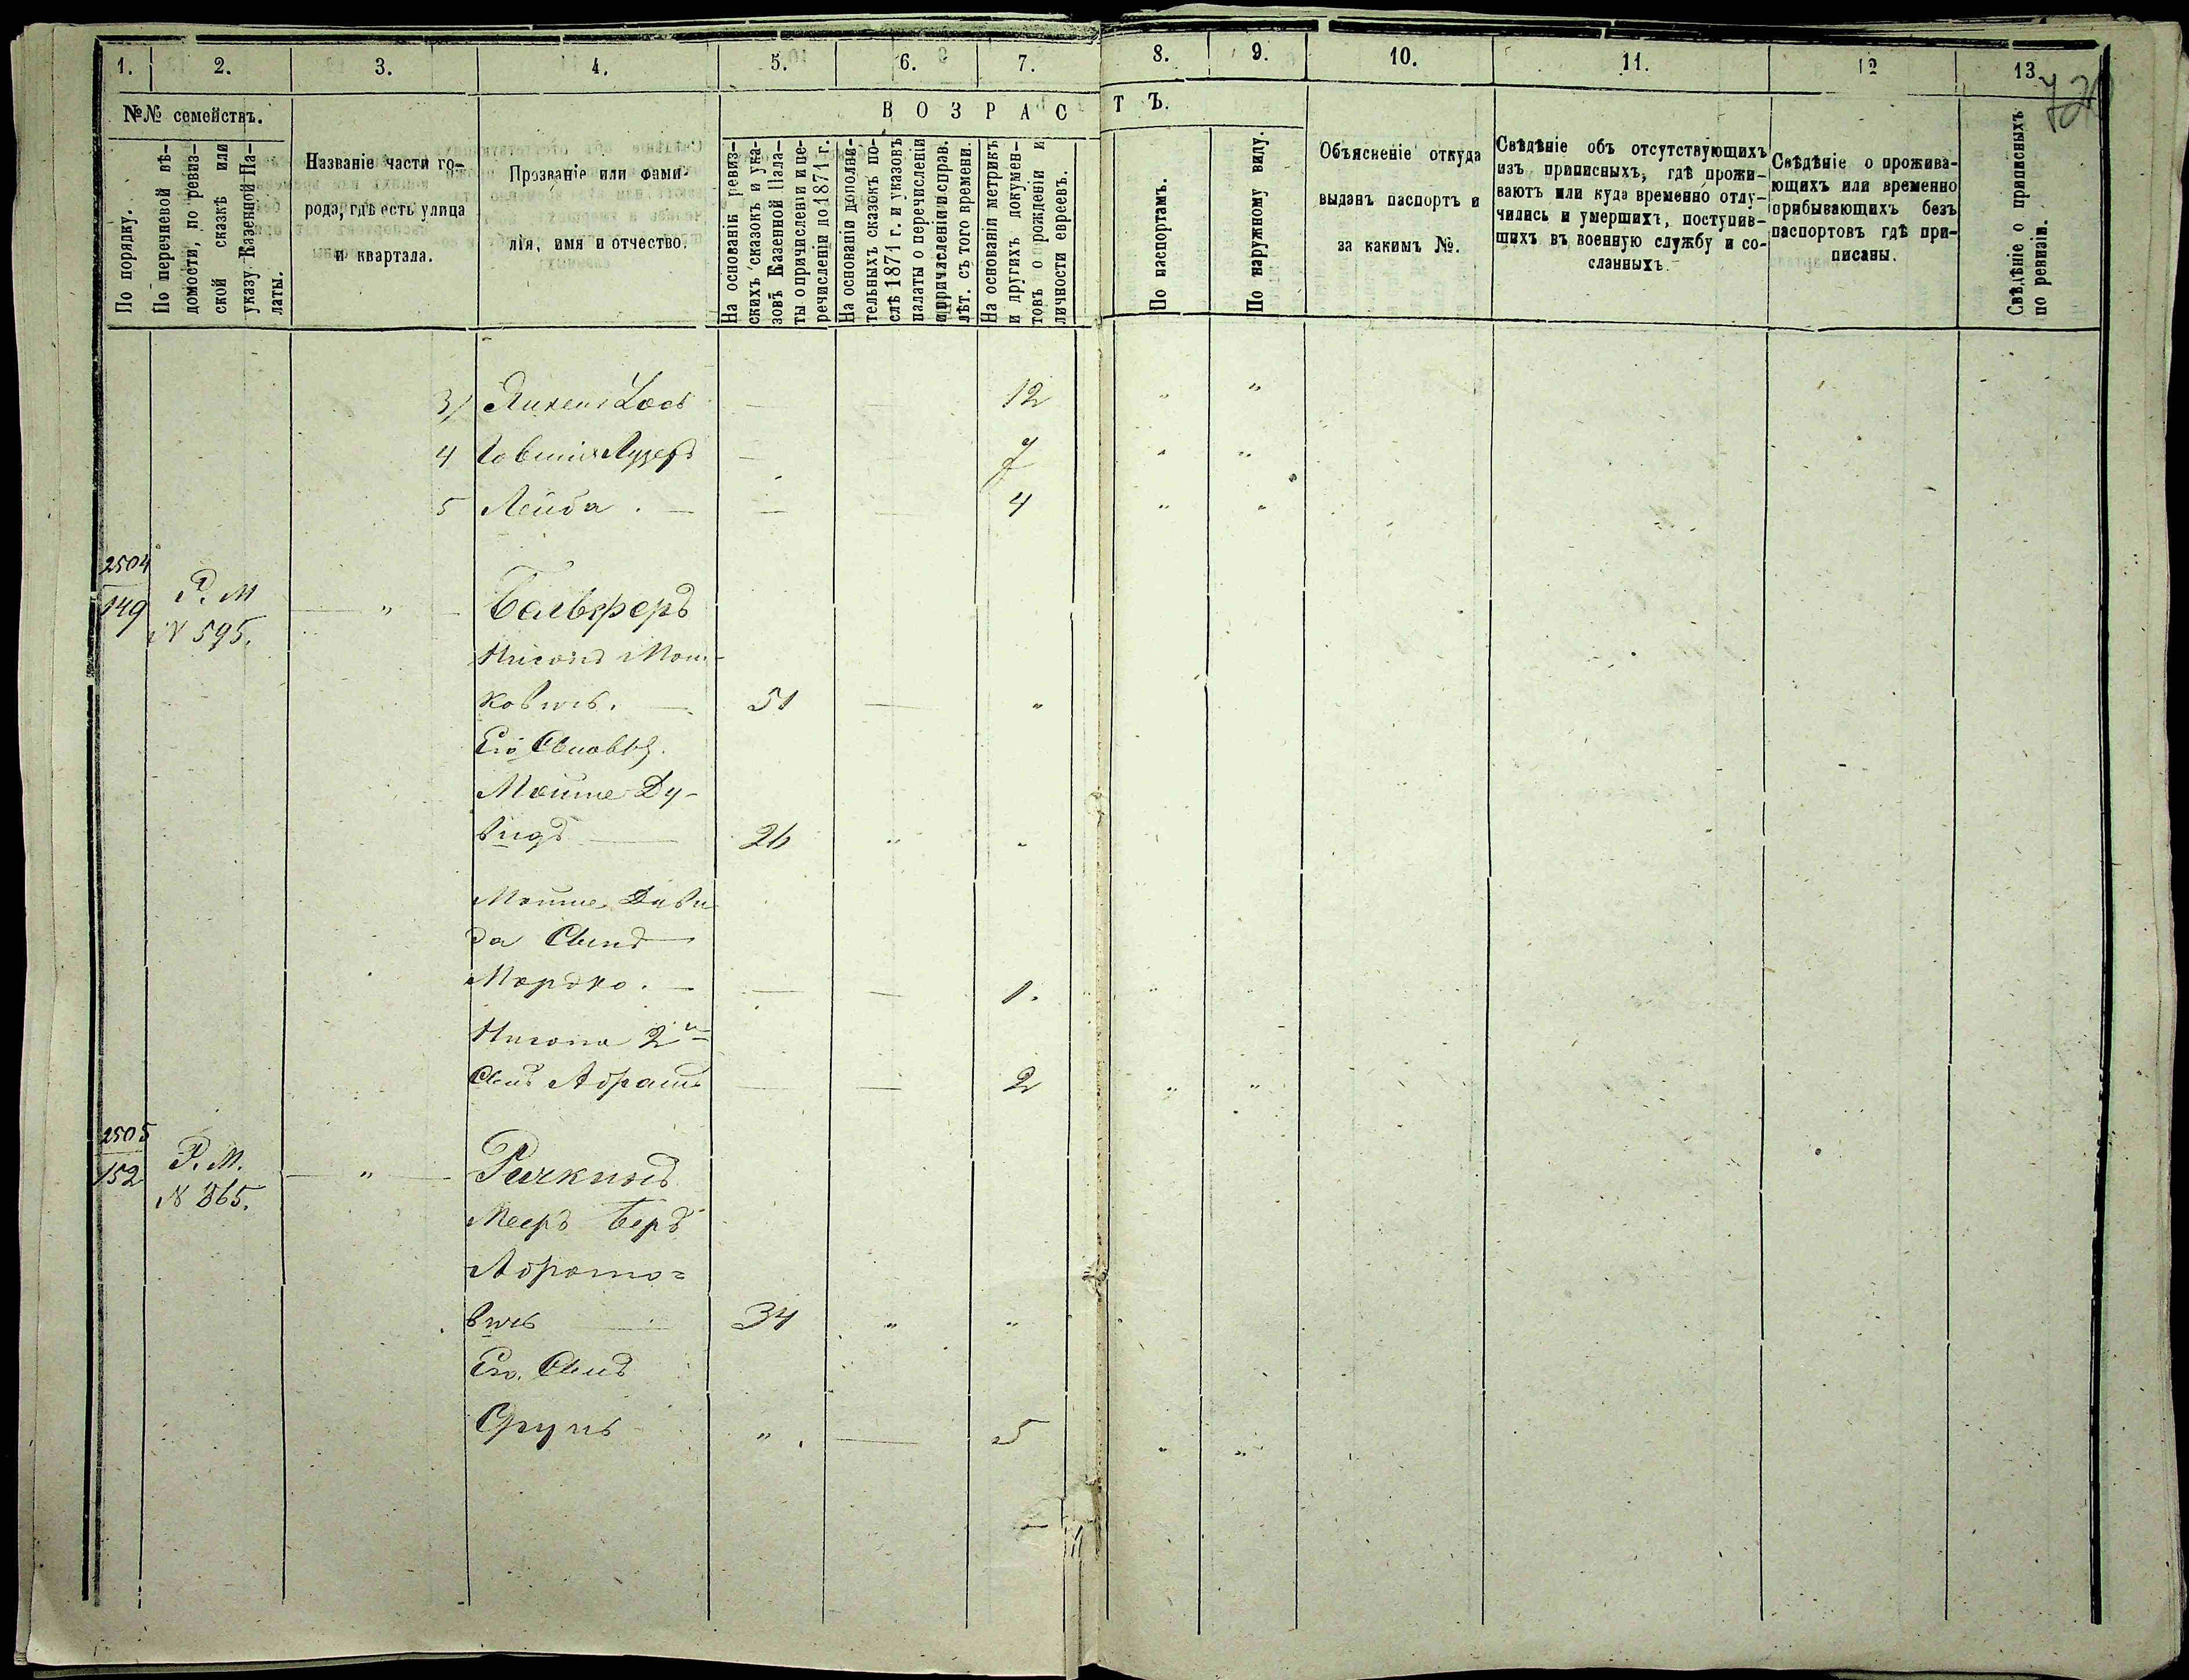 1. 2. 3. 4. 5. 6. 7. 8. 9. 10. 11. 12 13.
№№ семействъ.
По порядку.
По перечневой вѣ-
домости, по ревиз-
ской сказкѣ или
указу Казенной Па-
латы.
Названіе части го-
рода, гдѣ есть улица
и квартала.
Прозваніе или фами-
лія, имя и отчество.
ВОЗРАСТЪ.
На основаніи ревиз-
скихъ сказокъ и ука-
зовъ Казенной Пала-
ты о причисленіи и пе-
речисленіи по 1871 г.
На основаніи дополни-
тельныхъ сказокъ по-
слѣ 1871 г. и указовъ
палаты о перечисленіи
и причисленіи и справ.
лѣт. съ того времени.
На основаніи метрикъ
и другихъ докумен-
товъ о рожденіи и
личности евреевъ.
По паспортамъ.
По наружному виду.
Объясненіе откуда
выданъ паспортъ и
за какимъ №.
Свѣдѣніе объ отсутствующихъ
изъ приписныхъ, гдѣ прожи-
ваютъ или куда временно отлу-
чились и умершихъ, поступив-
шихъ въ военную службу и со-
сланныхъ.
Свѣдѣніе о прожива-
ющихъ или временно
прибывающихъ безъ
паспортовъ гдѣ при-
писаны.
Свѣдѣніе о приписныхъ
по ревизіи.
3/ 12
4 7
5 Лейба. — — — 4 " "
2504
149 Р. М
N 595. — " — Бельферъ
Нисонъ Мош-
ковичь. — 51 — "
Его Сыновья.
Мойше Ду-
видъ — 26 " "
Мойше Дави
да Сынъ
Мордко. — — — 1.
Нисона 2й
Сынъ Абрамъ — — 2 " "
2505
152 Р. М.
N 365. — " — Ричкинъ
Мееръ Беръ
Абрамо=
вичь — 34 " "
Его Сынъ
Сруль " — 5 " "